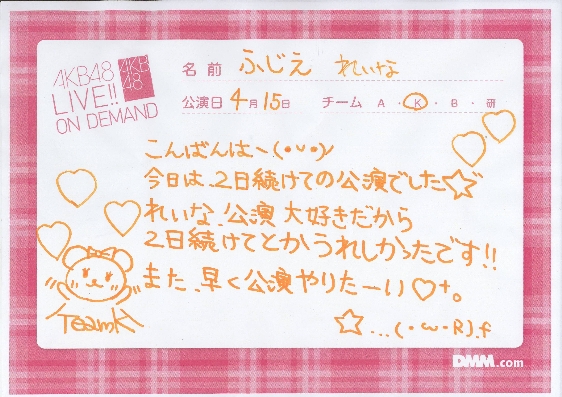 AKB48
LIVE!!
ON DEMAND
AKB
48
名前 ふじえ れいな
公演日 4月15日 チーム A・K・B・研
こんばんは~(・∪・)/
今日は、2日続けての公演でした☆
れいな、公演大好きだから
2日続けてとかうれしかったです!!
また、早く公演やりたーい♡+。
☆...(・ω・R).f
TeamK
DMM.com